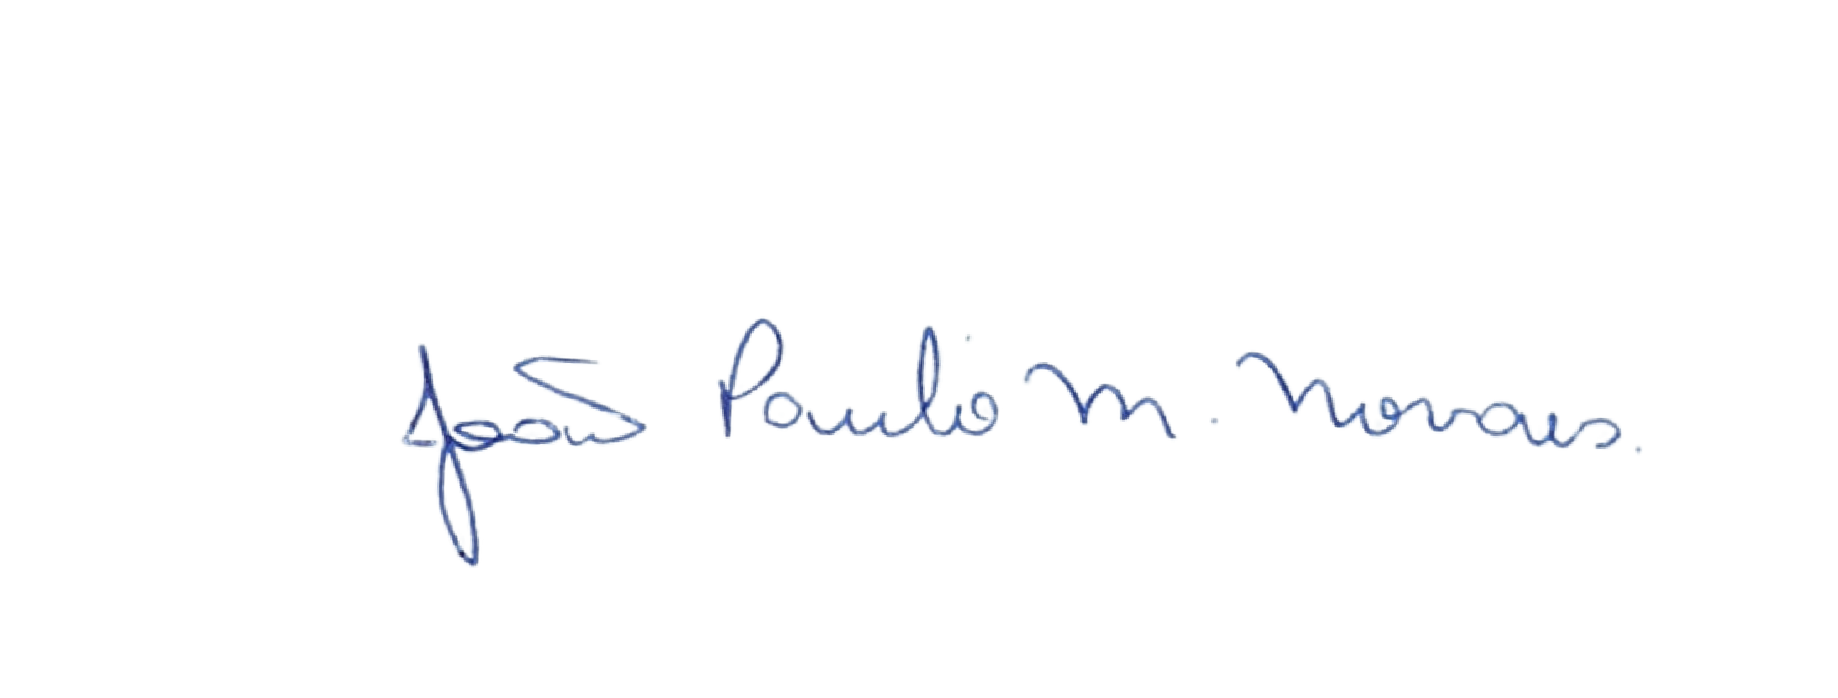 João Paulo M. Novaes.